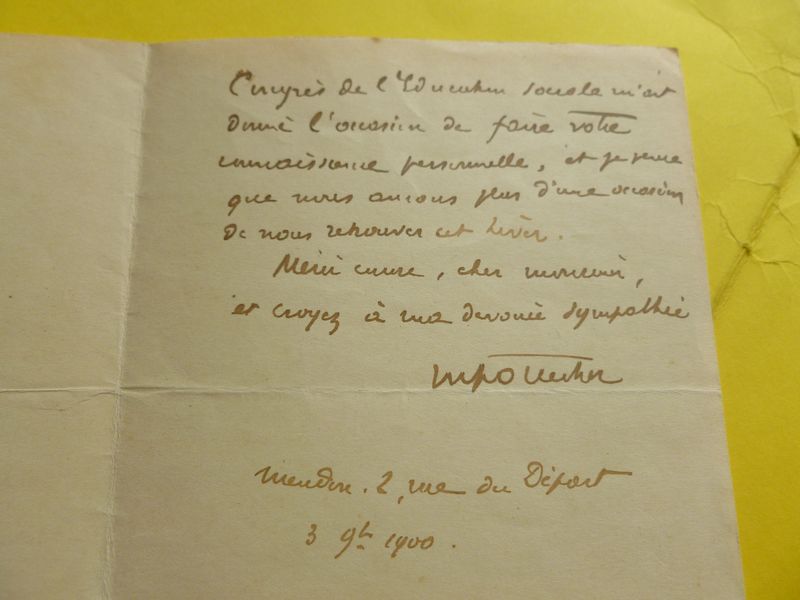 Congrès de l'Education sociale m'ait
donné l'occasion de faire votre
connaissance personnelle, et je pense
que nous aurons plus d'une occasion
de nous retrouver cet hiver.
Merci encore, cher monsieur,
et croyez à ma dévouée sympathie
MPottecher
Meudon. 2, rue du Départ
3 9bre 1900.